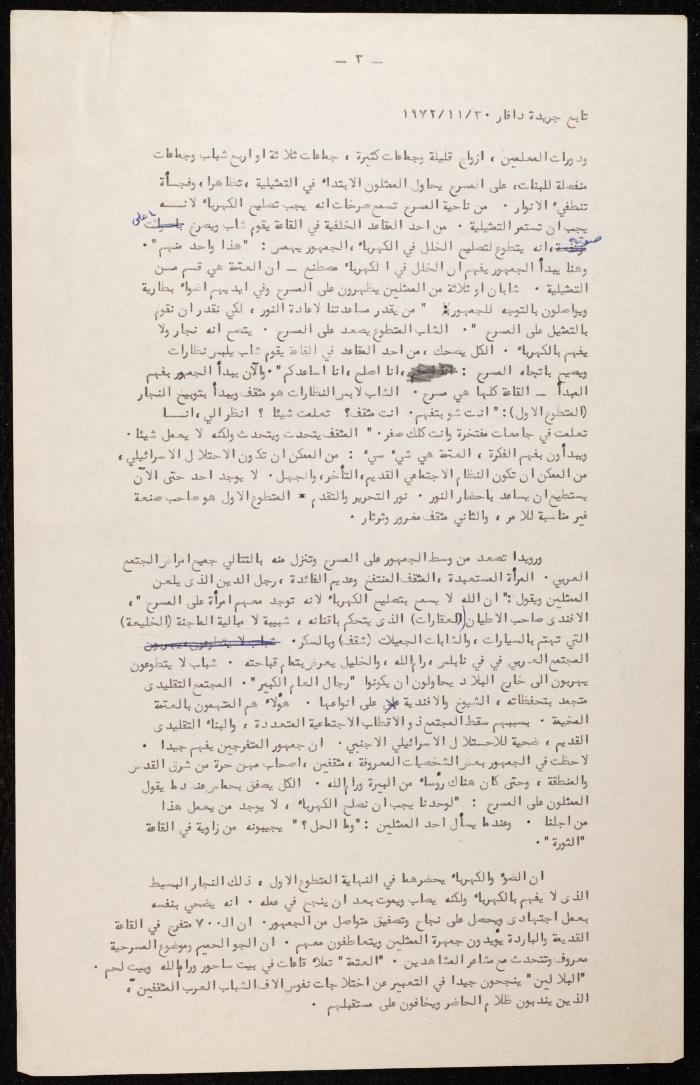 — ٣ —
تابع جريدة دافار ١٩٧٢/١١/٣٠
ودورات المعلمين ، ازواج قليلة وجماعات كثيرة ، جماعات ثلاثة او اربع شباب وجماعات
منفصلة للبنات، على المسرح يحاول الممثلون الابتداء في التمثيلية ، تظاهرا ، وفجـأة
تنطفيء الانوار . من ناحية المسرح تسمع صرخات انه يجب تصليح الكهرباء لانـــه
يجب ان تستمر التمثيلية . من احد المقاعد الخلفية في القاعة يقوم شاب ويصرخ باعلى
صوته ،انه يتطوع لتصليح الخلل في الكهرباء ،الجمهور يهمس : "هذا واحد منهم".
وهنا يبدأ الجمهور يفهم ان الخلل في الكهرباء مصطنع — ان العتمة هي قسم مـن
التمثيلية . شابان او ثلاثة من الممثلين يظهرون على المسرح وفي ايديهم اضواء بطارية
ويواصلون بالتوجه للجمهور: "من يقدر مساعدتنا لاعادة النور ، لكي نقدر ان نقوم
بالتمثيل على المسرح ". الشاب المتطوع يصعد على المسرح . يتضح انه نجار ولا
يفهم بالكهرباء . الكل يضحك ،من احد المقاعد في القاعة يقوم شاب يلبس نظارات
ويصيح باتجاه المسرح : ،انا اصلح ،انا اساعدكم". والآن يبدأ الجمهور بفهم
المبدأ — القاعة كلها هي مسرح . الشاب لابس النظارات هو مثقف ويبدأ بتوبيخ النجار
(المتطوع الاول): "انت شو بتفهم. انت مثقف؟ تعلمت شيئا ؟ انظر الي ،انـــا
تعلمت في جامعات مفتخرة وانت كلك صفر. " المثقف يتحدث ويتحدث ولكنه لا يعمل شيئا.
ويبدأون بفهم الفكرة ، العتمة هي شيء سيء : من الممكن ان تكون الاحتلال الاسرائيلي ،
من الممكن ان تكون النظام الاجتماعي القديم ،التأخر، والجهل . لا يوجد احد حتى الآن
يستطيع ان يساعد باحضار النور . نور التحرير والتقدم * المتطوع الاول هو صاحب صنعة
غير مناسبة للامر ، والثاني مثقف مغرور وثرثار .
ورويدا تصعد من وسط الجمهور على المسرح وتنزل منه بالتتالي جميع امراض المجتمع
العربي . المرأة المستعبدة ، المثقف المنتفخ وعديم الفائدة ، رجل الدين الذي يلعن
الممثلين ويقول :" ان الله لا يسمح بتصليح الكهرباء لانه توجد معهم امرأة على المسرح "،
الافندي صاحب الاطيان (العقارات) الذي يتحكم باقنانه ، شبيبة لا مبالية الماجنة (الخليعة)
التي تهتم بالسيارات ، والشابات الجميلات (شقف) وبالسكر. شباب لا يتطوعون يهربون
المجتمع العربي في في نابلس ،رام الله ، والخليل يعرض بتمام قباحته . شباب لا يتطوعون
يهربون الى خارج البلاد يحاولون ان يكونوا "رجال العالم الكبير". المجتمع التقليدي
متجمد بتحفظاته ، الشيوخ والافندية على انواعها . هؤلاء هم المتهمون بالعتمة
المخيفة . بسببهم سقط المجتمع ذو الاقطاب الاجتماعية المتعددة ، والبناء التقليدي
القديم ، ضحية للاحتلال الاسرائيلي الاجنبي . ان جمهور المتفرجين يفهم جيدا .
لاحظت في الجمهور بعض الشخصيات المعروفة ، مثقفين ،اصحاب مهن حرة من شرق القدس
والمنطقة ، وحتى كان هناك رؤساء من البيرة ورام الله . الكل يصفق بحماس عندما يقول
الممثلون على المسرح : "لوحدنا يجب ان نصلح الكهرباء ، لا يوجد من يعمل هذا
من اجلنا . وعندما يسأل احد الممثلين :"وما الحل ؟" يجيبونه من زاوية في القاعة
"الثورة".
ان الضوء والكهرباء يحضرهما في النهاية المتطوع الاول ، ذلك النجار البسيط
الذي لا يفهم بالكهرباء ولكنه يصاب ويموت بعد ان ينجح في عمله . انه يضحي بنفسه
بعمل اجتهادي ويحصل على نجاح وتصفيق متواصل من الجمهور. ان ال٧٠٠ متفرج في القاعة
القديمة والباردة يؤيدون جمهرة الممثلين ويتعاطفون معهم . ان الجو الحميم وموضوع المسرحية
معروف وتتحدث مع مشاعر المشاهدين . "العتمة" تملأ قاعات في بيت ساحور ورام الله وبيت لحم .
"البلالين" ينجحون جيدا في التعبير عن اختلاجات نفوس الاف الشباب العرب المثقفين ،
الذين يندبون ظلام الحاضر ويخافون على مستقبلهم .